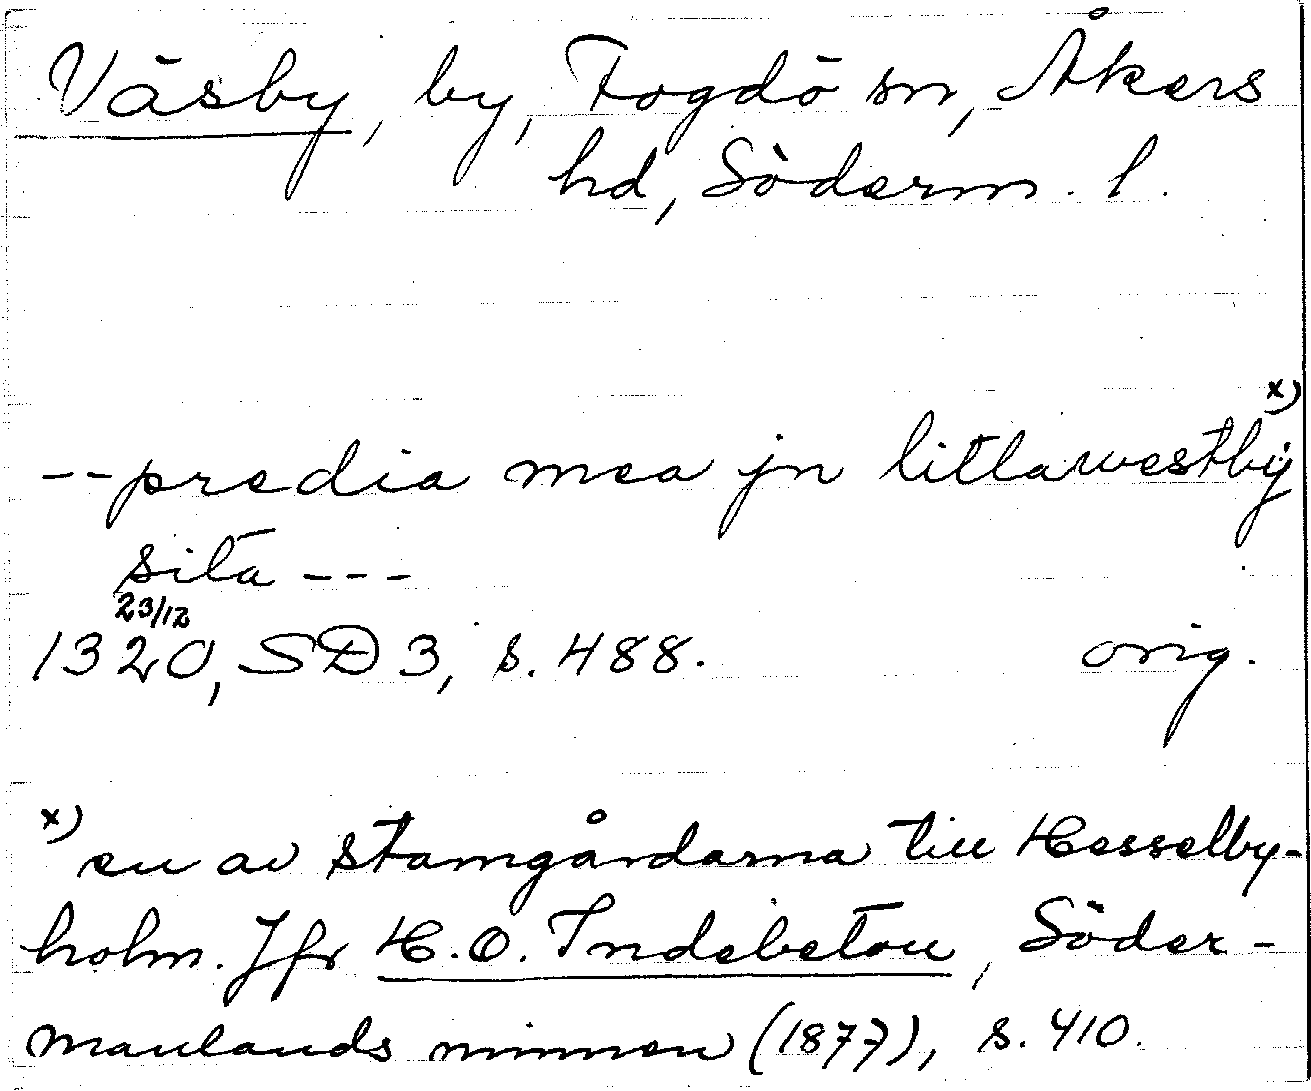 Väsby, by, Fogdö sn, Åkers
hd, Söderm. l.
-- predia mea jn litlawestbÿ x)
sita ---
23/12
1320, SD 3, s. 488. orig.
x) en av stamgårdarna till Hesselby-
holm. Jfr H.O. Indebetou, Söder-
manlands minnen (1877), s. 410.